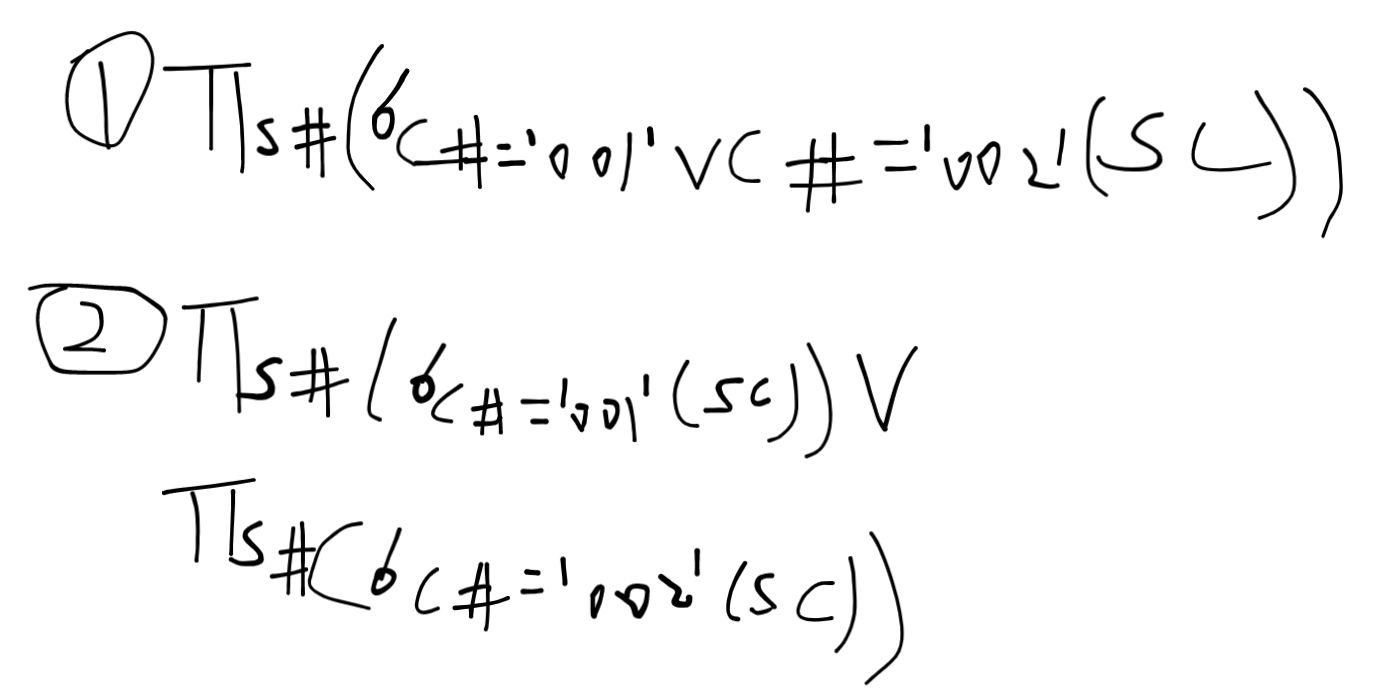 ① Π S#(σ C#='001' ∨ C#='002'(SC))
② Π S#(σ C#='001'(SC)) ∨
Π S#(σ C#='002'(SC))